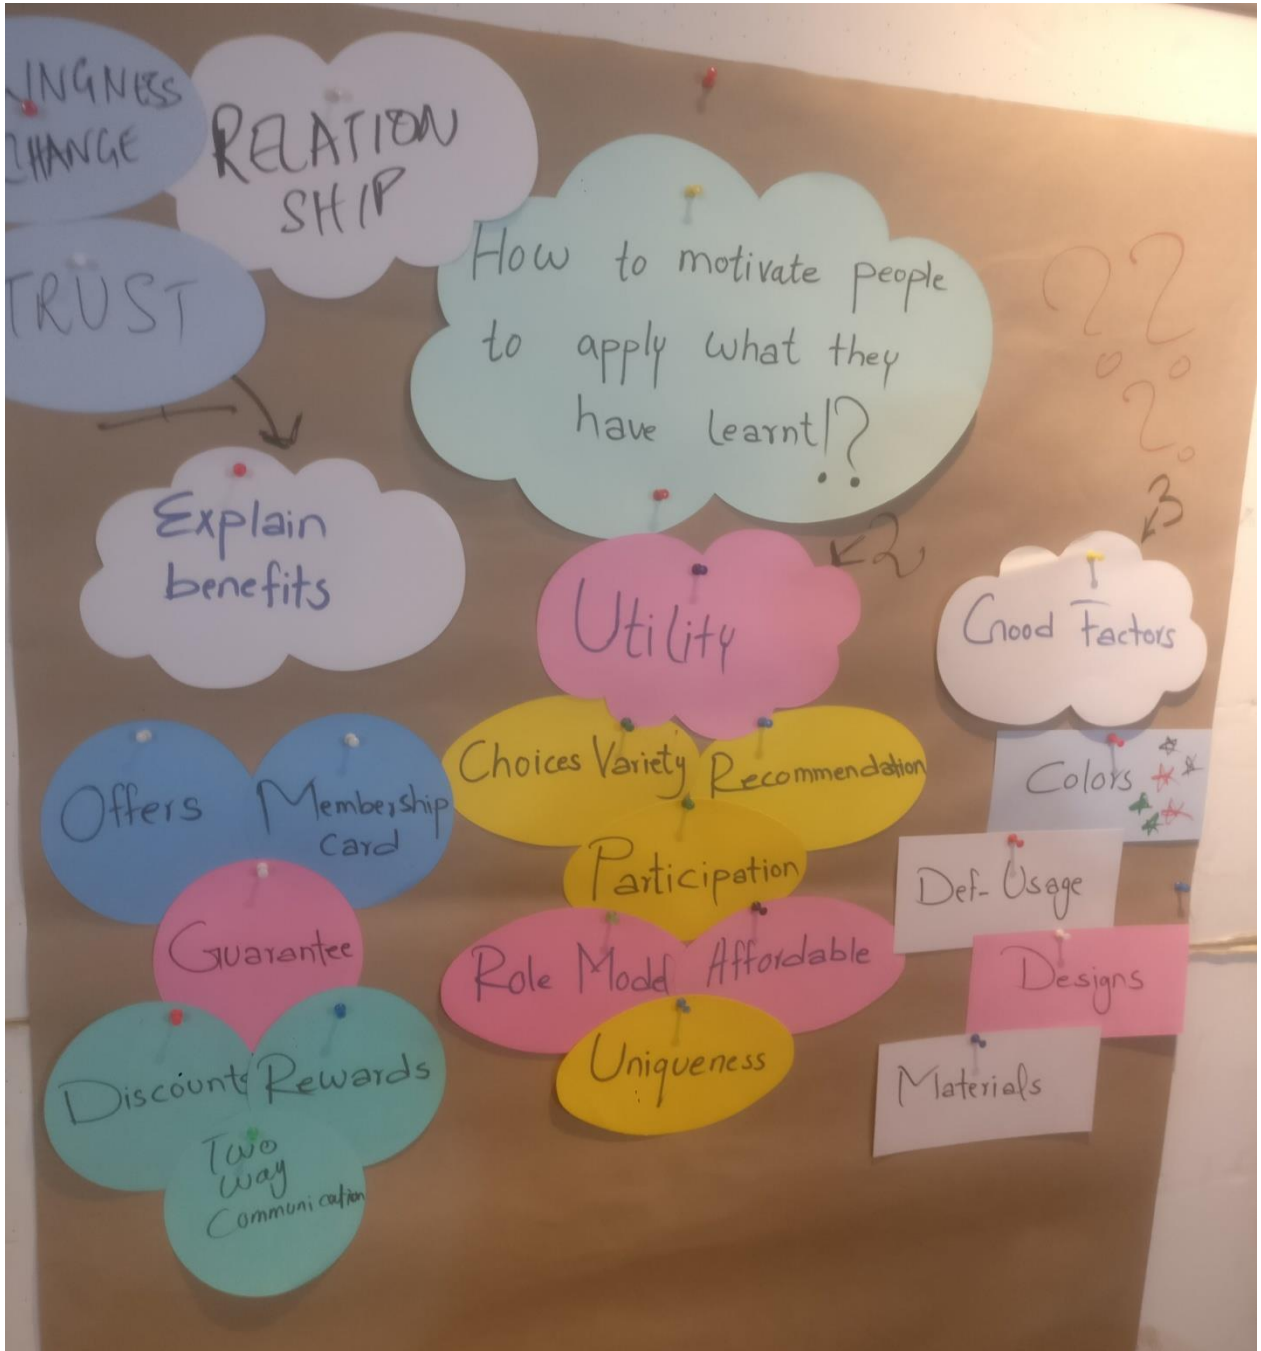 INGNESS
CHANGE
RELATION
SHIP
TRUST
How to motivate people
to apply what they
have learnt!?
??
?
Explain
benefits
2
Utility
3
Good Factors
Offers
Membership
card
Guarantee
Discounts
Rewards
Two
way
Communication
Choices Variety
Recommendation
Participation
Role Model
Affordable
Uniqueness
Colors
Def- Usage
Designs
Materials